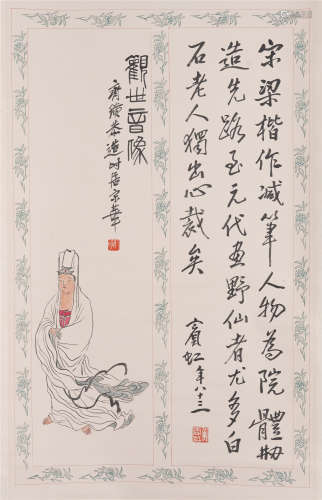 宋梁楷作减筆人物為院體
造先路至元代畫野仙者尤多白
石老人獨出心裁矣
賓虹年八十三
觀世音像
齊璜恭造時居京華